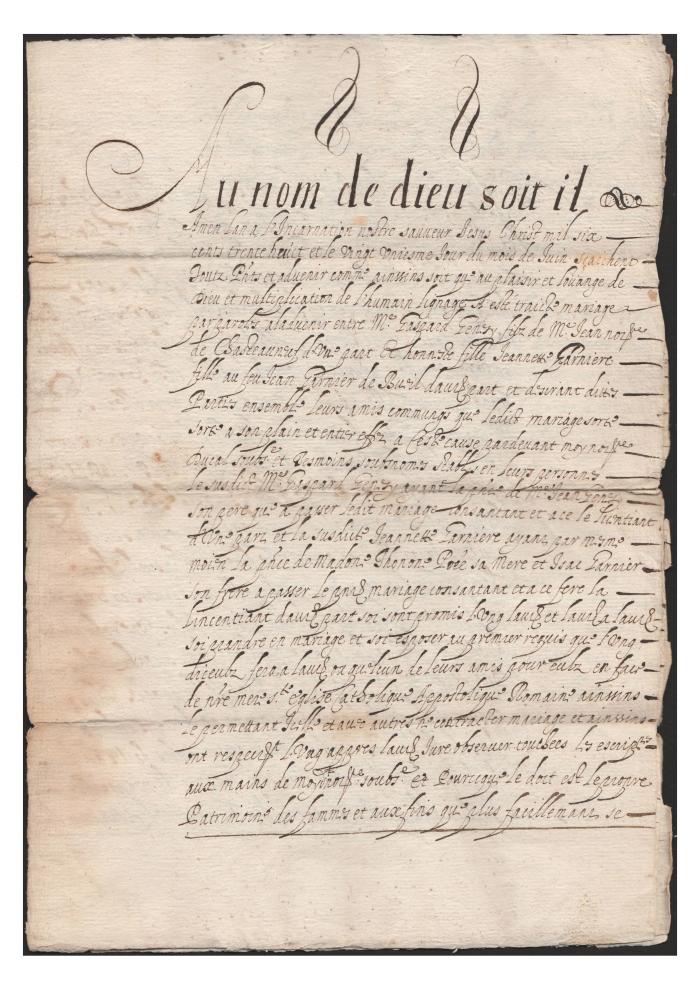 Au nom de dieu soit il
Amen Lan a l'Incarnation nostre sauveur Jesus Christ mil six
cents trente heuict et le vingt vniesme Jour du mois de Juin scaichent
toutz pnts et advenir comme ainssins soit que au plaisir et louange de
Dieu et multiplication de l'humain lignage A esté traicté mariage
par parolles aladvenir entre Me Gaspard Geney filz de Me Jean nore
de Chasteauneuf d'vne part Et honneste fille Jeannette Garniere
fille au feu Jean Garnier de Bueil d'aultre part et desirant dittes
Parties ensemble leurs amis communs que ledict mariage sorte
sorte a son plain et entier effet a ceste cause pardevant moy nore
ducal soubsé et tesmoins soubsnomés establys en leurs personnes
le susdict Me Gaspard Geney ayant la de Me Jean Geney
son pere que a passer ledit mariage consantant et a ce le licentiant
d'vne part et la susdite Jeannette Garniere ayant par mesme
moien la de Madone Thonone sa Mere et Isac Garnier
son frere a passer le mariage consantant et a ce fere la
lincentiant d'aultre part soi sont promis l'vng l'aultre et l'aultre a l'aultre
soi prandre en mariage et soi esposer au premier requis que l'vng
diceulx fera a l'aultre ou quelcun de leurs amis pour eulx en face
de nre mere ste eglise Catholique Apostolique Romaine ainssins
le permettant Icelle et avec autres ne contracter mariage et ainssins
ont l'vng appres l'aultre Jure observer touchées les escriptes
aux mains de moy nore soubsé Et Pourceque le doit est le propre
Patrimoine des fammes et aux fins que plus facillemant se